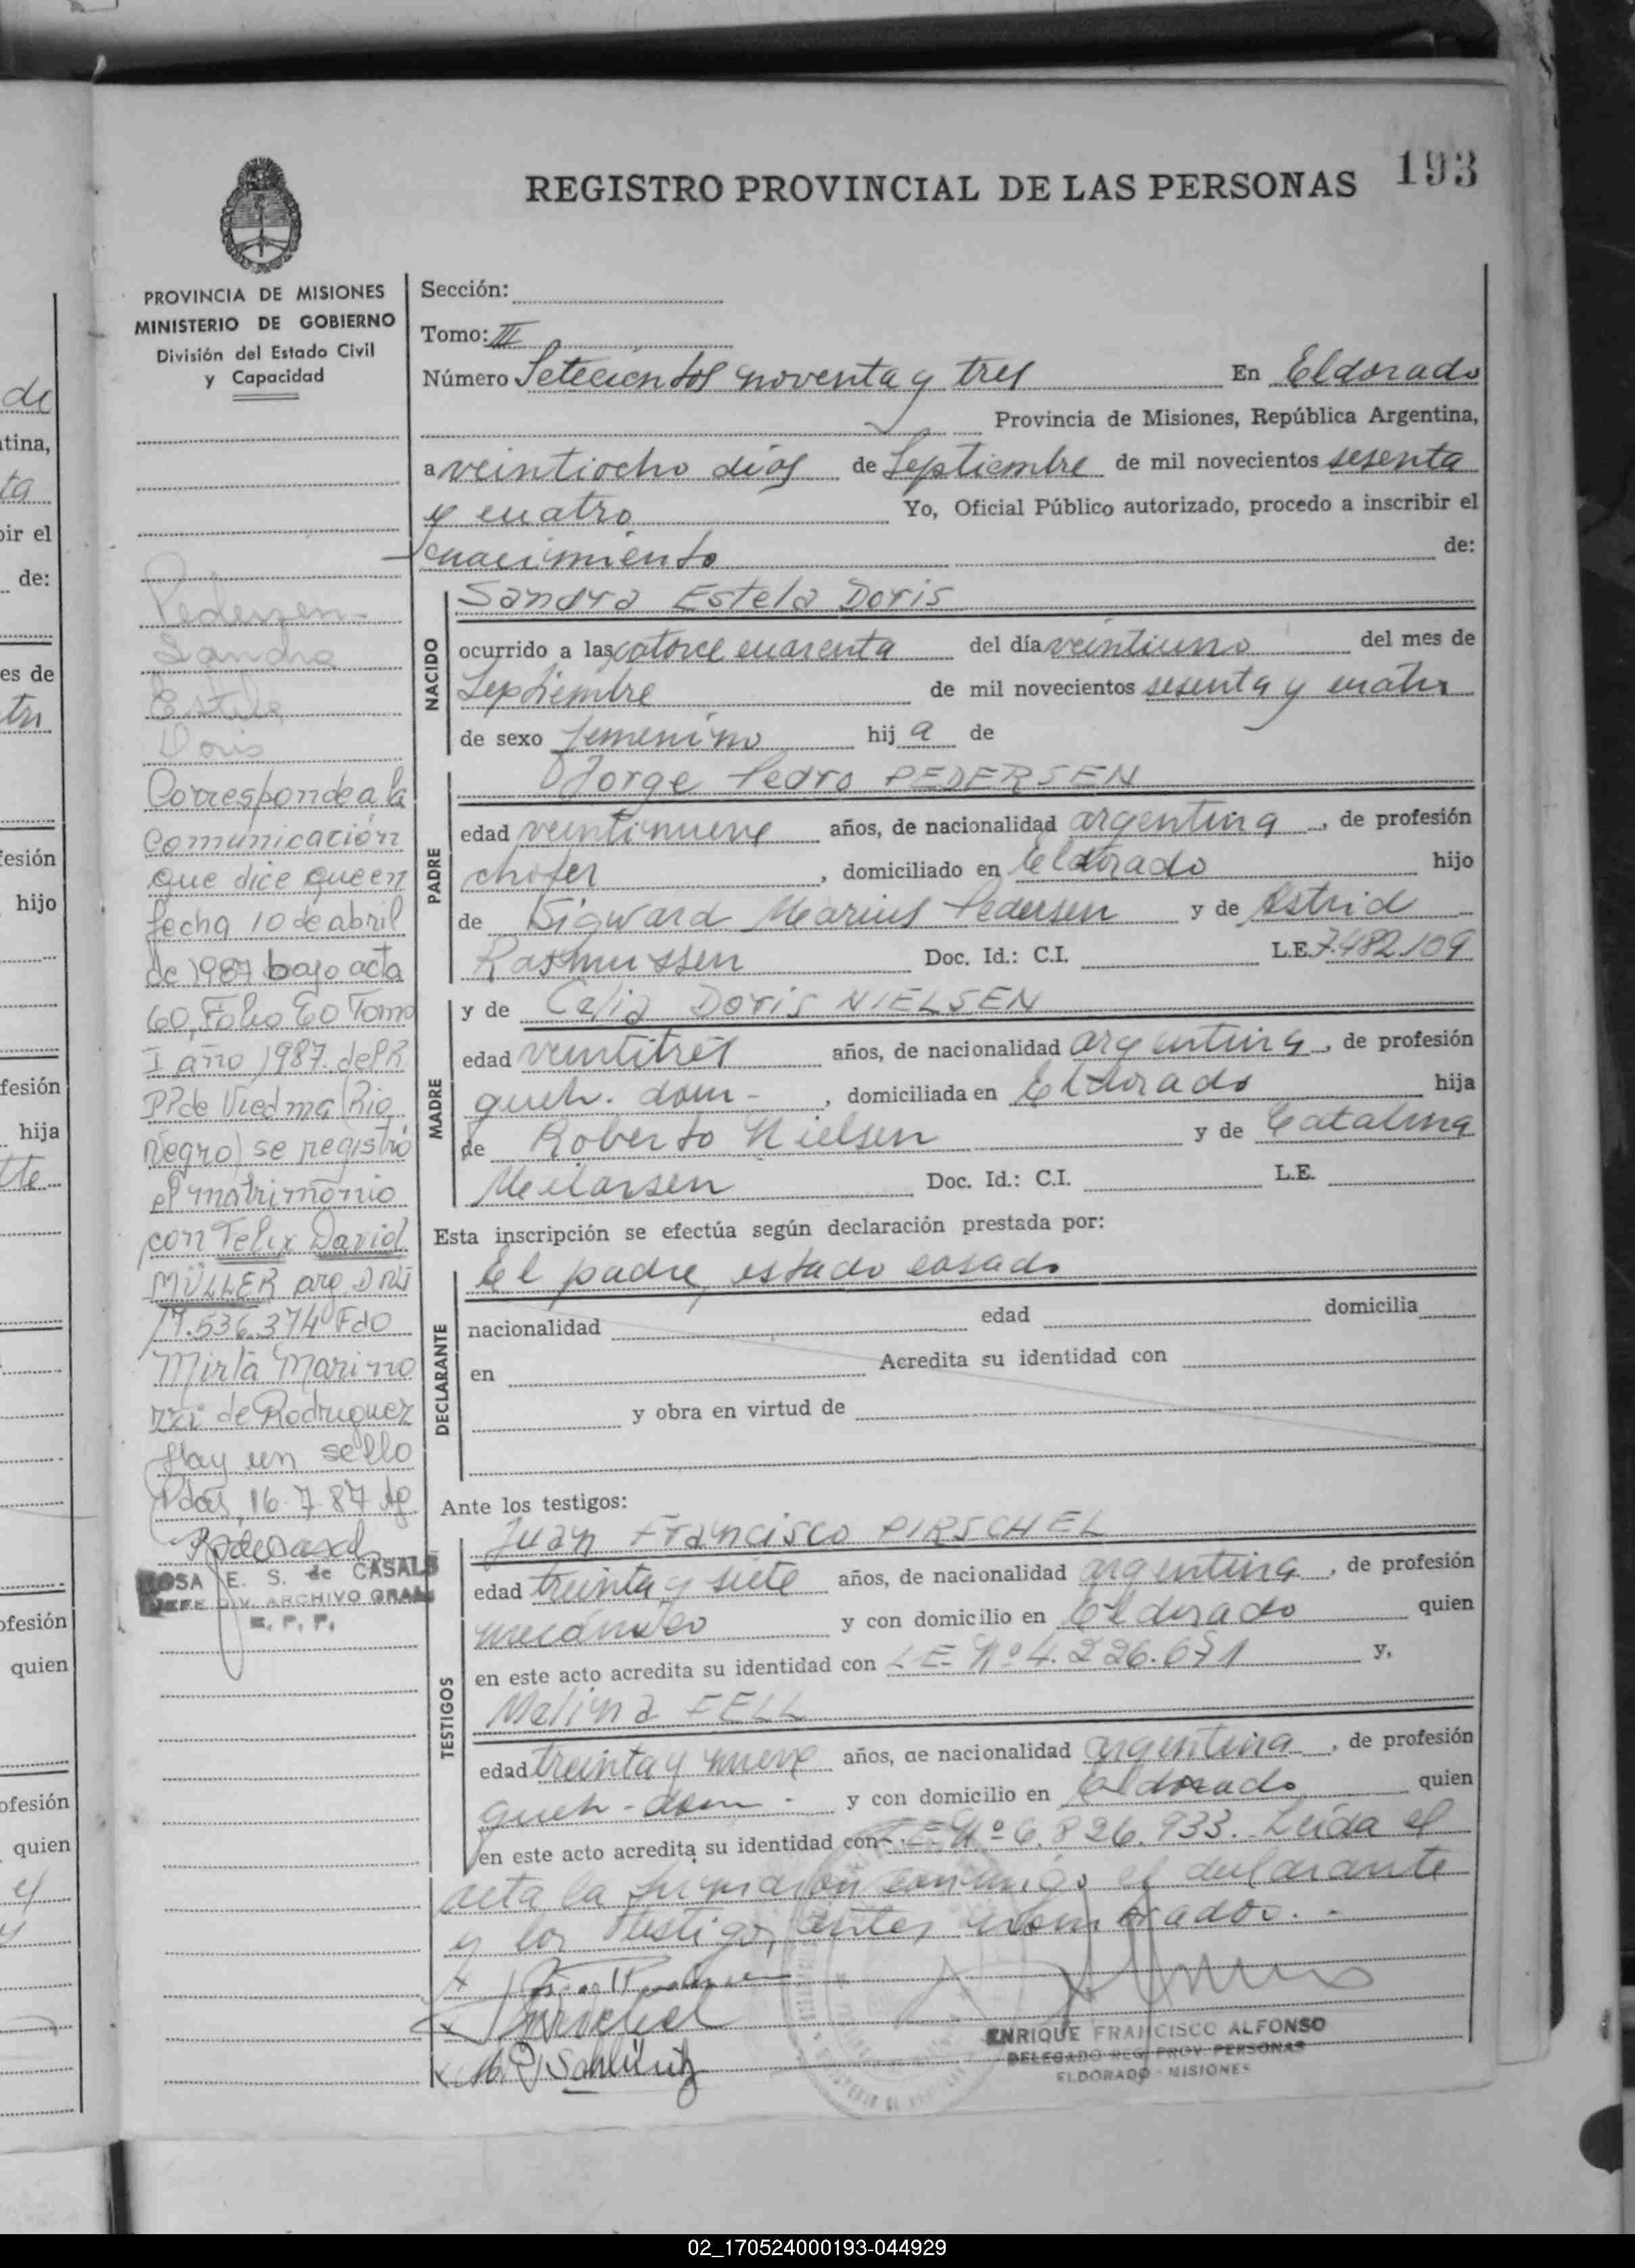 193
REGISTRO PROVINCIAL DE LAS PERSONAS
PROVINCIA DE MISIONES
MINISTERIO DE GOBIERNO
División del Estado Civil
y Capacidad
Pedersen
Sandra
Estela
Doris
Corresponde a la
Comunicación
que dice que en
fecha 10 de abril
de 1987 bajo acta
60, Folio 60 Tomo
I año 1987. del R.
PP de Viedma (Rio
Negro) se registró
el matrimonio
con Felix David
MÜLLER arg. DNI
17.536.374 Fdo
Mirta Marino
zzi de Rodriguez
Hay un sello
Pdas, 16.7.87
ROSA E. S. de CASALS
JEFE DIV. ARCHIVO GRAL
R. P. P.
Sección:
Tomo: III
Número Setecientos noventa y tres En Eldorado
Provincia de Misiones, República Argentina,
a veintiocho días de Septiembre de mil novecientos sesenta
y cuatro Yo, Oficial Público autorizado, procedo a inscribir el
nacimiento de:
NACIDO
Sandra Estela Doris
ocurrido a las catorce cuarenta del día veintiuno del mes de
Septiembre de mil novecientos sesenta y cuatro
de sexo femenino hij a de
PADRE
Jorge Pedro PEDERSEN
edad veintinueve años, de nacionalidad argentina, de profesión
chofer, domiciliado en Eldorado hijo
de Sigward Marius Pedersen y de Astrid
Rasmussen Doc. Id.: C.I. L.E. 7.482.109
MADRE
y de Celia Doris NIELSEN
edad veintitrés años, de nacionalidad argentina, de profesión
queh. dom-, domiciliada en Eldorado hija
de Roberto Nielsen y de Catalina
Doc. Id.: C.I. L.E.
Esta inscripción se efectúa según declaración prestada por:
DECLARANTE
El padre, estado casado
nacionalidad edad domicilia
en Acredita su identidad con
y obra en virtud de
Ante los testigos:
TESTIGOS
Juan Francisco PIRSCHEL
edad treinta y siete años, de nacionalidad argentina, de profesión
mecánico y con domicilio en Eldorado quien
en este acto acredita su identidad con L E- Nº 4.226.671 y,
Melina FELL
edad treinta y nueve años, de nacionalidad argentina, de profesión
queh - dom - y con domicilio en Eldorado quien
en este acto acredita su identidad con Nº 6.826.933. Leída el
acta la firmaron conmigo el declarante
y los testigos antes nombrados. -
ENRIQUE FRANCISCO ALFONSO
DELEGADO REG. PROV. PERSONAS
ELDORADO - MISIONES
02_170524000193-044929